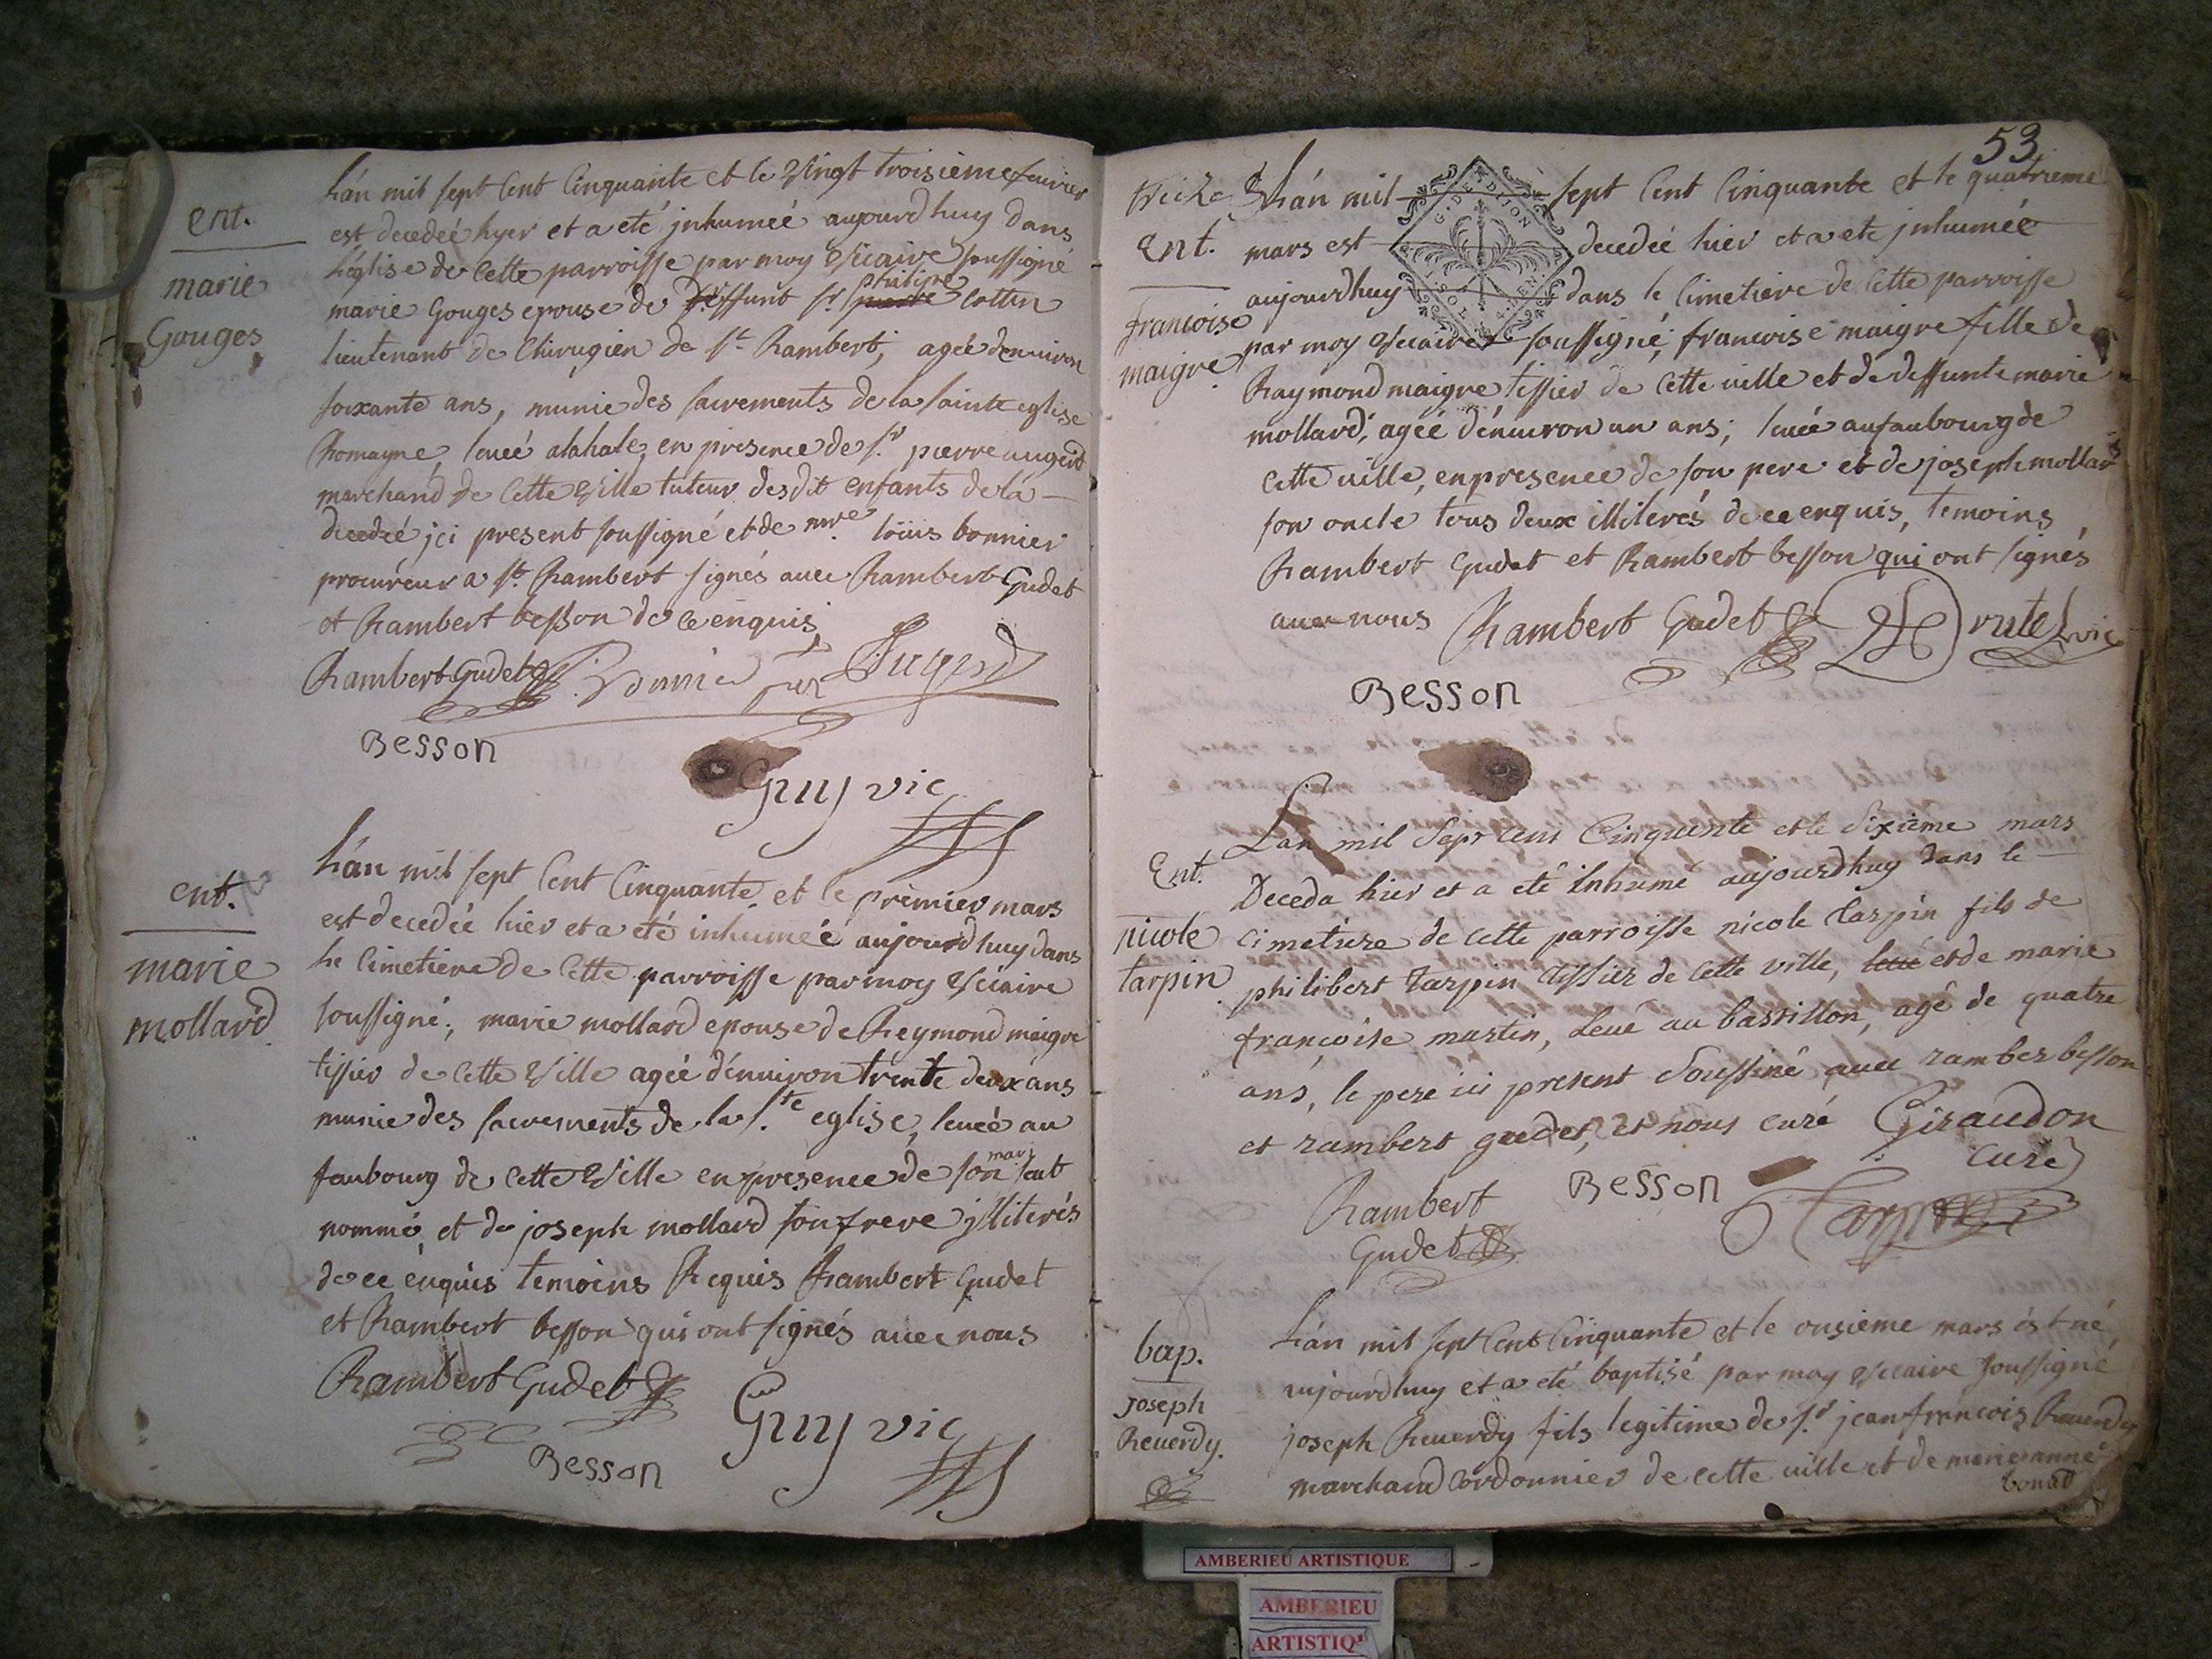 ent.
marie
Gouges
Lán mil sept Cent Cinquante et le Vingt troisieme fevrier
est decedeé hyer et a eté jnhumeé aujourdhuy dans
L'église de Cette parroisse par moy Vicaire soussigné
philipe
marie Gouges epouse de deffunt sr. pierre Cottin
lieutenant de Chirugien de st. Rambert, ageé denuiron
soixante ans, munie des sacrements de la sainte eglise
Romayne, leueé alahale, en presence de sr. pierre augerd
marchand de Cette Ville tuteur desdit enfants de la
decedeé jci present soussigné et de mre. loüis bonnier
procureur a st. Rambert signés auec Rambert Gudet
et Rambert besson de ce enquis
Rambert Gudet Bonnier Augerd
Besson
Guy vic
ent.
marie
mollard
Lán mil sept Cent Cinquante et le premier mars
est decedeé hier et a eté inhumeé aujourdhuy dans
le Cimetiere de Cette parroisse par moy Vicaire
soussigné; marie mollard epouse de Reymond maigre
tissier de Cette Ville ageé dénuiron trente deux ans
munie des sacrements de la ste. eglise, leueé au
faubourg de Cette Ville en presence de son mari sut
nommé, et de joseph mollard son frere jlliterés
de ce enquis temoins Requis Rambert Gudet
et Rambert besson qui ont signés auec nous
Rambert Gudet
Guy vic
Besson
53
treize
G. DE DIJON
SOL 4. DEN
Lán mil sept Cent Cinquante et le quatrieme
Ent.
mars est decedeé hier et a eté jnhumeé
aujourdhuy dans le Cimetiere de Cette parroisse
francoise
maigre
par moy Vicaire soussigné; francoise maigre fille de
Raymond maigre tissier de Cette uille et de deffunte marie
mollard, ageé dénuiron un ans; leueé au faubourg de
Cette uille, en presence de son pere et de joseph mollard
son oncle tous deux illiterés de ce enquis, temoins
Rambert Gudet et Rambert besson qui ont signés
auec nous Rambert Gudet Drutel vic
Besson
Ent.
nicole
tarpin
Lan mil Sept cent Cinquente et le Sixieme mars
Deceda hier et a eté Inhumé aujourdhuy dans le
cimetiere de cette parroisse nicole tarpin fils de
philibert tarpin tissier de Cette ville, leué et de marie
françoise martin, Leué au bastillon, agé de quatre
ans, le pere ici present Soussiné auec rambert besson
et rambert gudet, et nous curé Giraudon
Curé
Rambert
Gudet
Besson
Tarpin
bap.
Joseph
Reuerdy.
Lán mil sept Cent Cinquante et le onsieme mars ést né
aujourdhuy et a eté baptisé par moy Vicaire soussigné
joseph Reuerdy fils legitime de sr. jean francois Reuerdy
marchand Cordonnier de cette uille et de marie anne
bonat
AMBERIEU ARTISTIQUE
AMBERIEU
ARTISTIQ